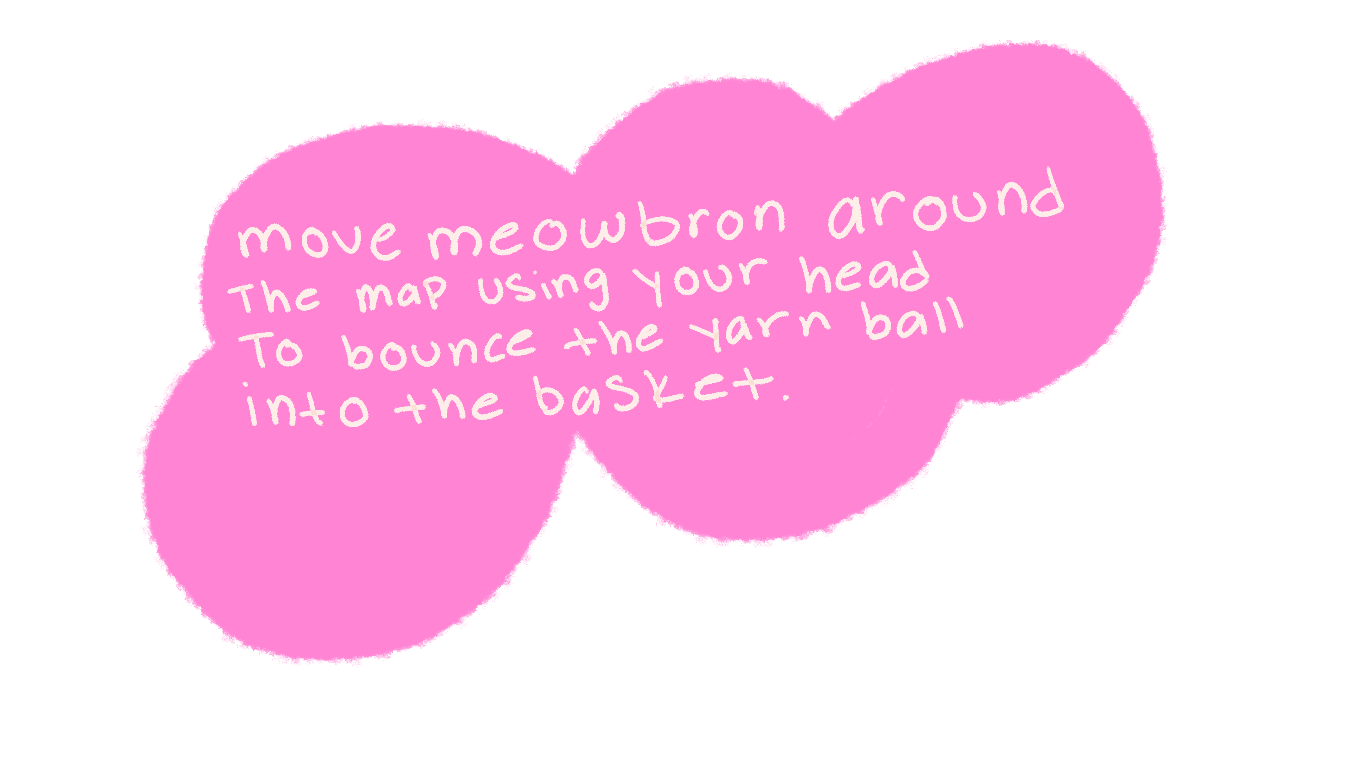 move meowbron around
The map using your head
To bounce the yarn ball
into the basket.